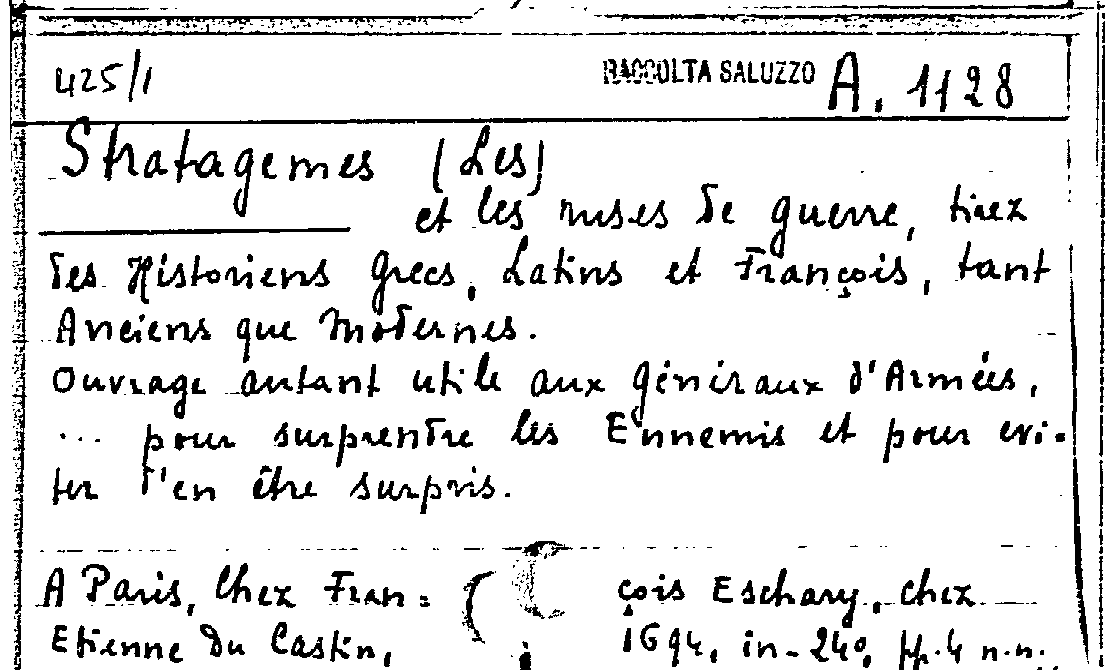 425/1 RACCOLTA SALUZZO A. 1128
Stratagemes (Les)
et les ruses de guerre, tirez
des Historiens Grecs, Latins et François, tant
Anciens que Modernes.
Ouvrage autant utile aux Généraux d'Armées,
... pour surprendre les Ennemis et pour evi-
ter d'en être surpris.
A Paris, Chez Fran= çois Eschary, chez
Etienne du Castin, 1694, in-24°, pp. 4 n.n.